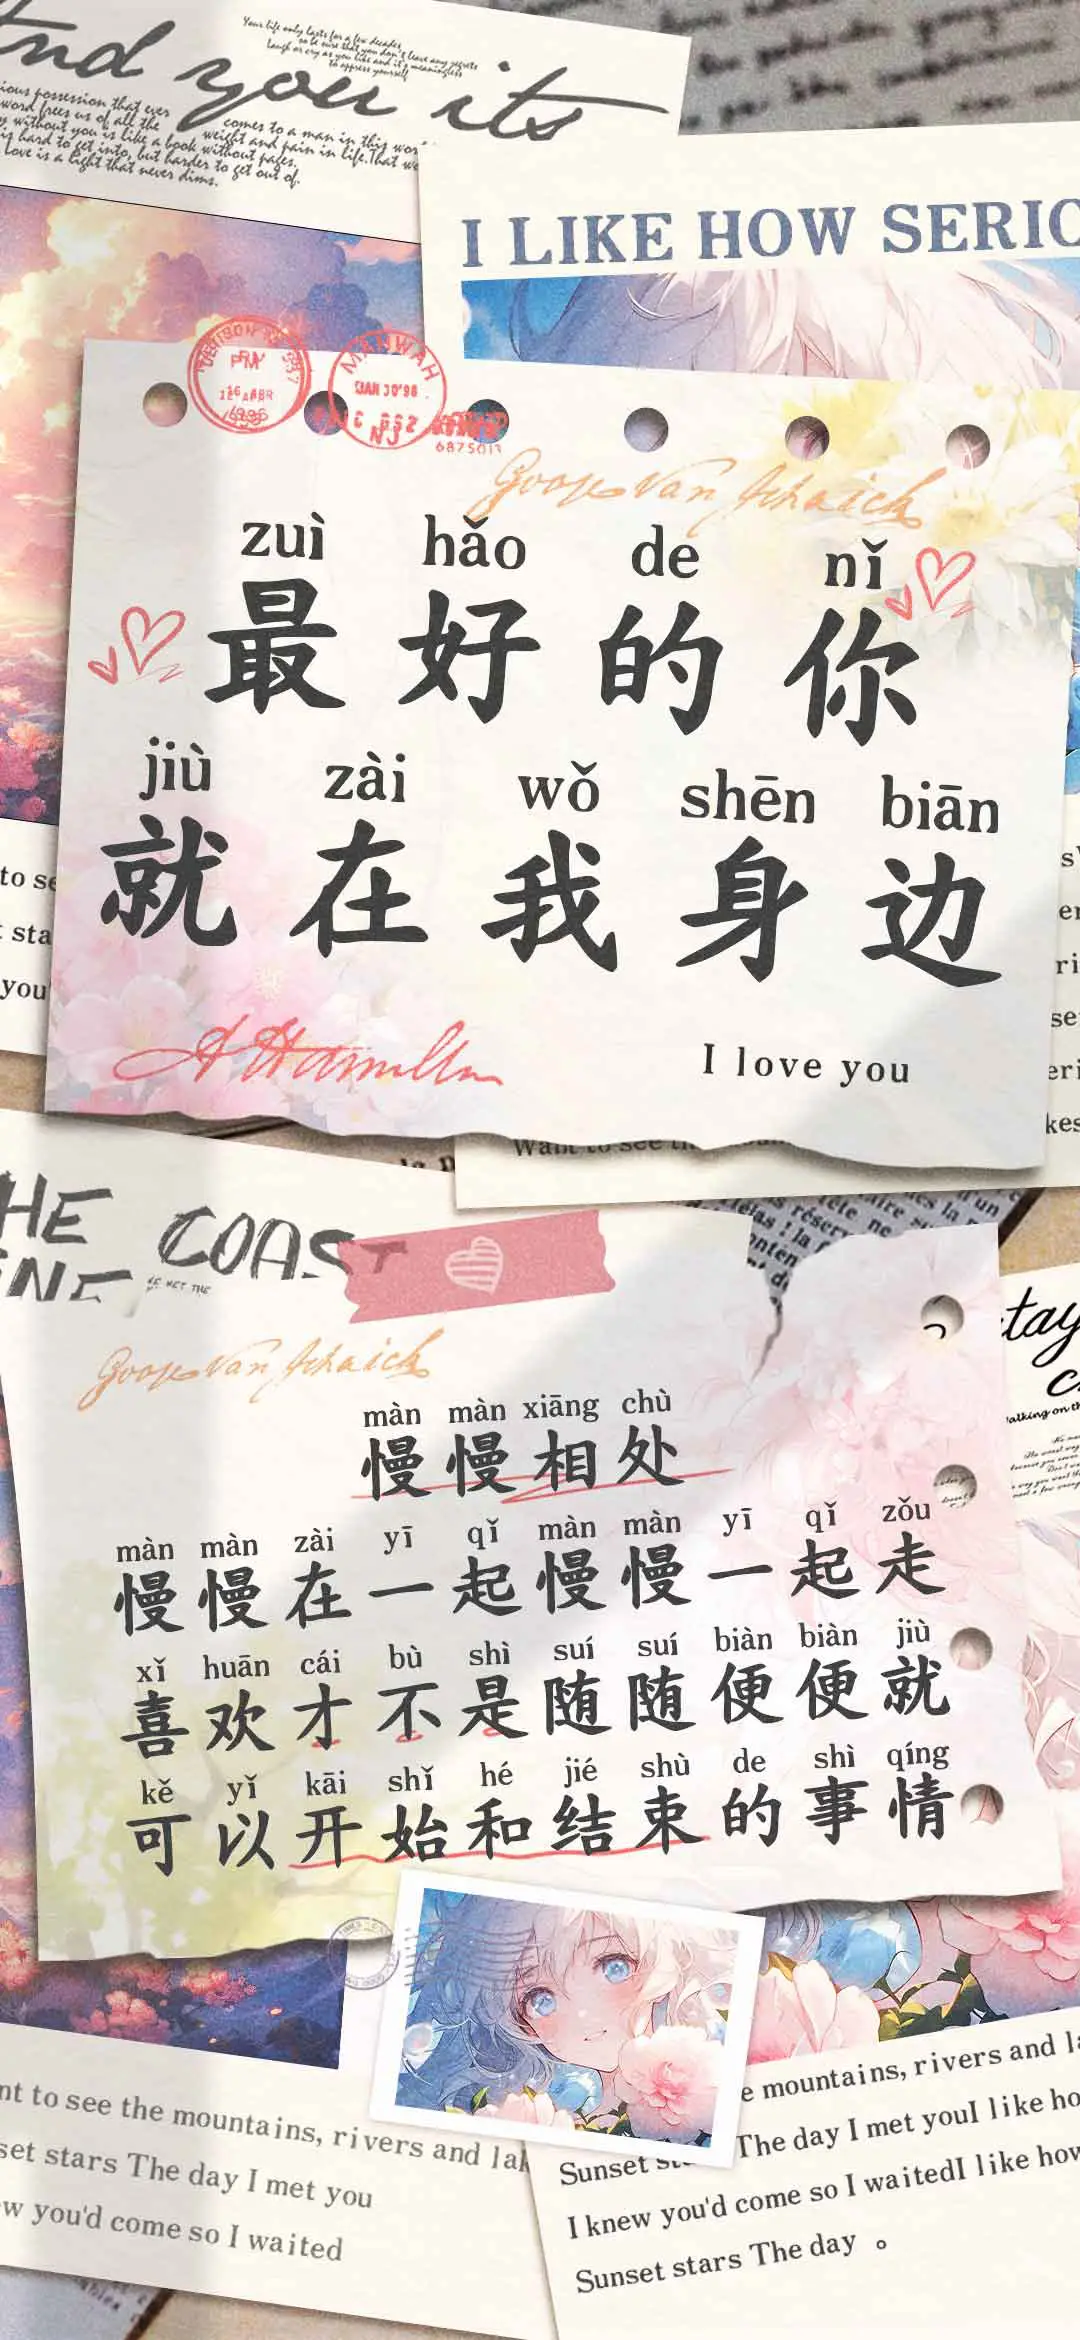 nd you its
Your life only lasts for a few decades,
so be sure that you don't leave any regrets
Laugh or cry as you like and it's meaningless
to oppress yourself
ious possession that ever
comes to a man in this wor
word frees us of all the
weight and pain in life. That wo
without you is like a book without pages.
is hard to get into, but harder to get out of.
Love is a light that never dims.
I LIKE HOW SERIO
PM
MAHWAH
JAN 30'96
NJ
687501
zuì hǎo de nǐ
最好的你
jiù zài wǒ shēn biān
就在我身边
to se
sta
you'
I love you
Want to see th
HE COAST
INE
màn màn xiāng chù
慢慢相处
màn màn zài yī qǐ màn màn yī qǐ zǒu
慢慢在一起慢慢一起走
xǐ huān cái bù shì suí suí biàn biàn jiù
喜欢才不是随随便便就
kě yǐ kāi shǐ hé jié shù de shì qíng
可以开始和结束的事情
tay
alking on th
nt to see the mountains, rivers and lak
set stars The day I met you
ew you'd come so I waited
e mountains, rivers and la
Sunset st The day I met youI like ho
I knew you'd come so I waitedI like how
Sunset stars The day 。